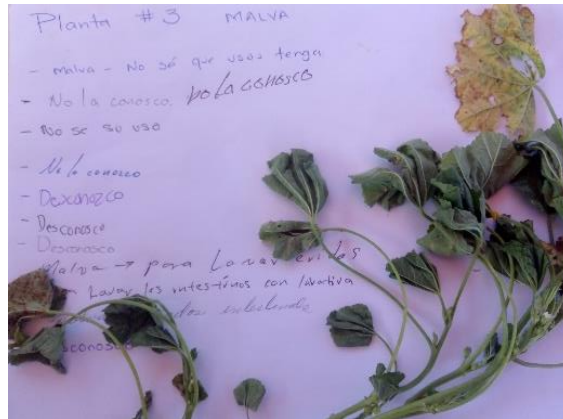 Planta #3 MALVA
- Malva - No sé que usos tenga
- No la conosco. No la conosco
- No se su uso
- No la conozco
- Desconozco
- Desconosco
- Desconosco
Malva → para Lavar eridas
Lavar los intestinos con lavativa
infectados
esconosco